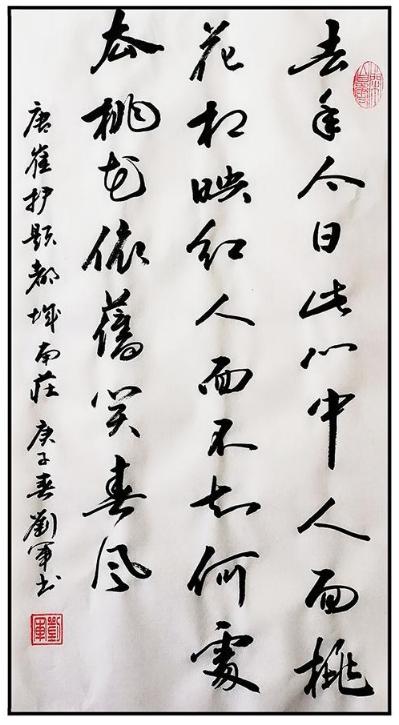 去年今日此门中人面桃
花相映红人面不知何處
去桃花依舊笑春风
唐崔护题都城南莊 庚子春劉军书
劉軍